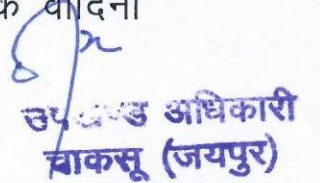 क वादिनी
उपखण्ड अधिकारी
चाकसू (जयपुर)